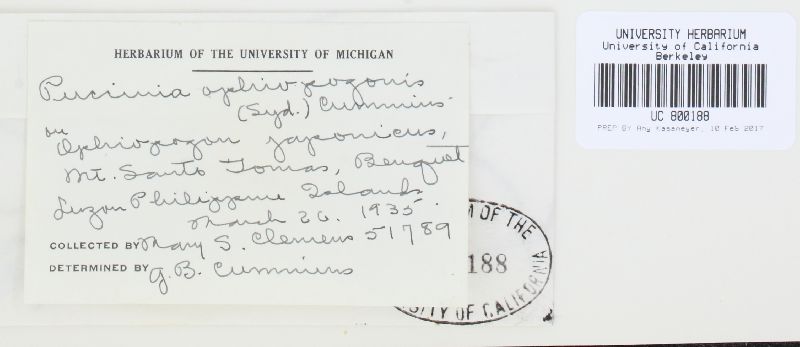 HERBARIUM OF THE UNIVERSITY OF MICHIGAN
Puccinia ophiopogonis
(Syd.) Cummins
on
Ophiopogon japonicus,
Mt. Santo Tomas, Benguet
Luzon Philippine Islands
March 26. 1935.
COLLECTED BY Mary S. Clemens 51789
DETERMINED BY G. B. Cummins
UNIVERSITY HERBARIUM
University of California
Berkeley
UC 800188
PREP BY Amy Kasameyer, 10 Feb 2017
M OF THE
188
SITY OF CALIFORNIA